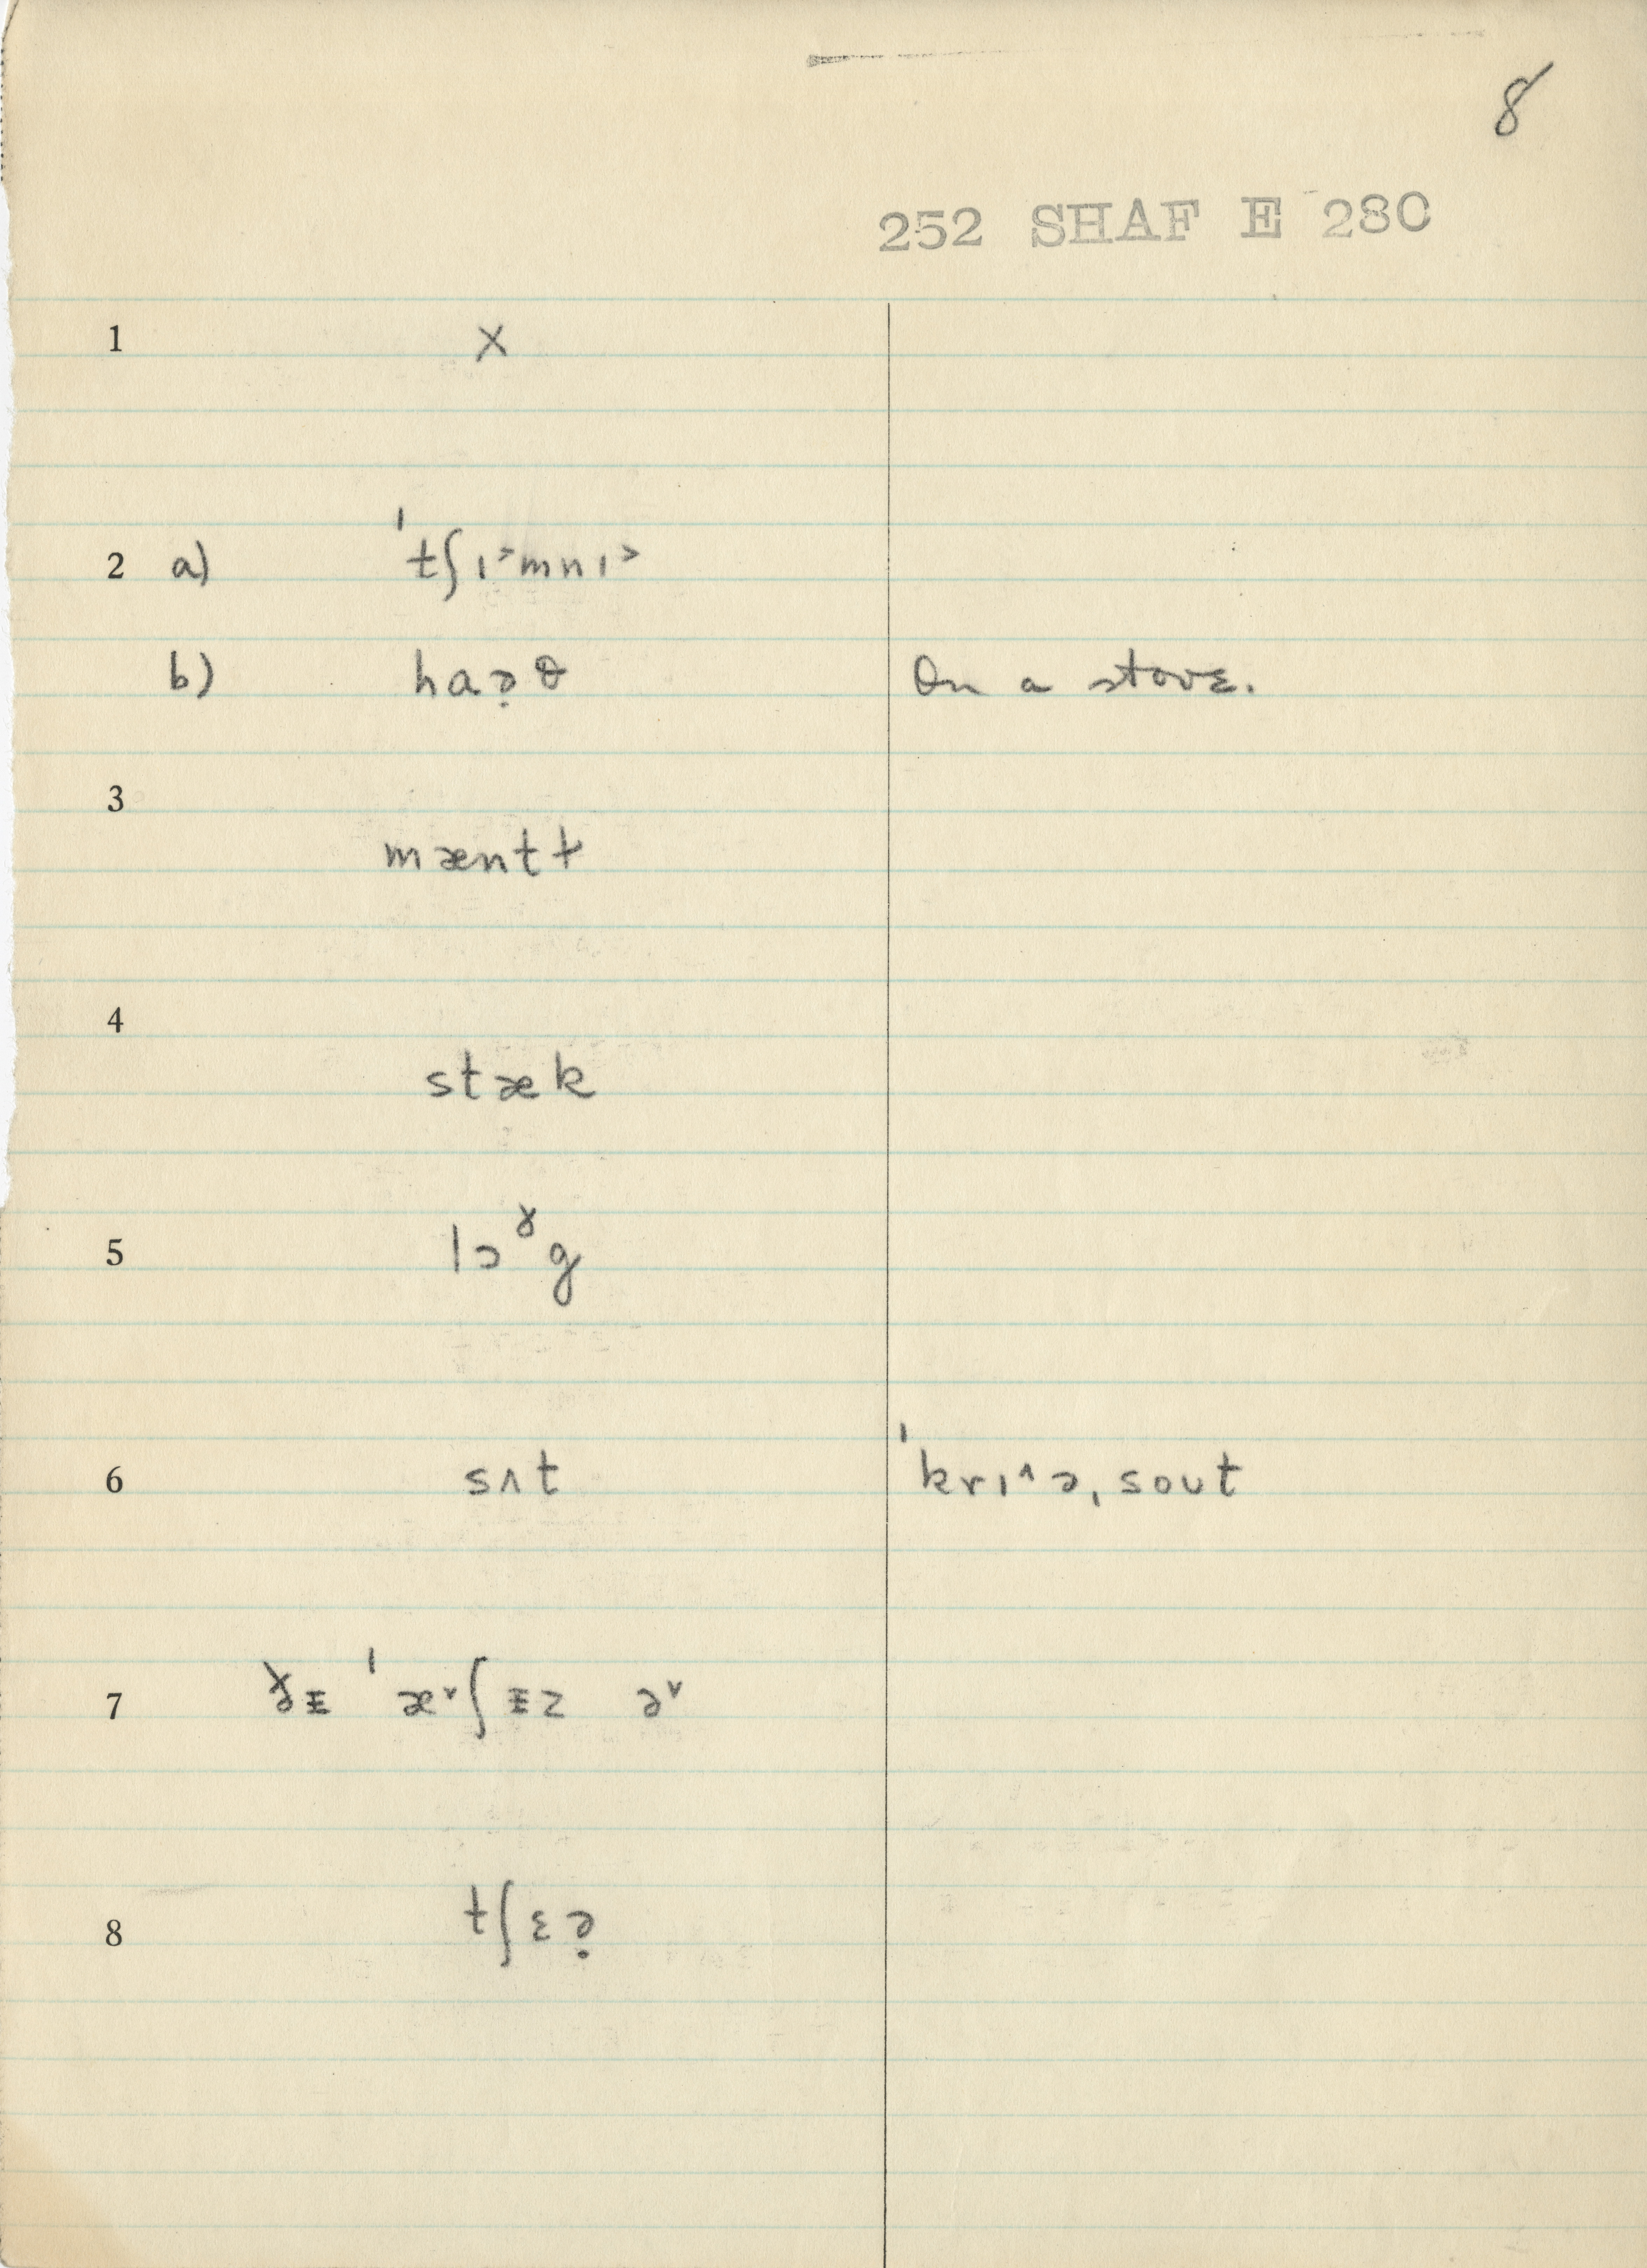 8
252 SHAF E 280
1 X
2 a) ˈtʃɪ˃mnɪ˃
b) haə̣θ On a stove.
3
mæntɫ
4
stæk
5 lɔˠg
6 sʌt ˈkrɪ˄ə, sout
7 ðᵻ ˈæ˅ʃᵻz ə˅
8 tʃɛə̣